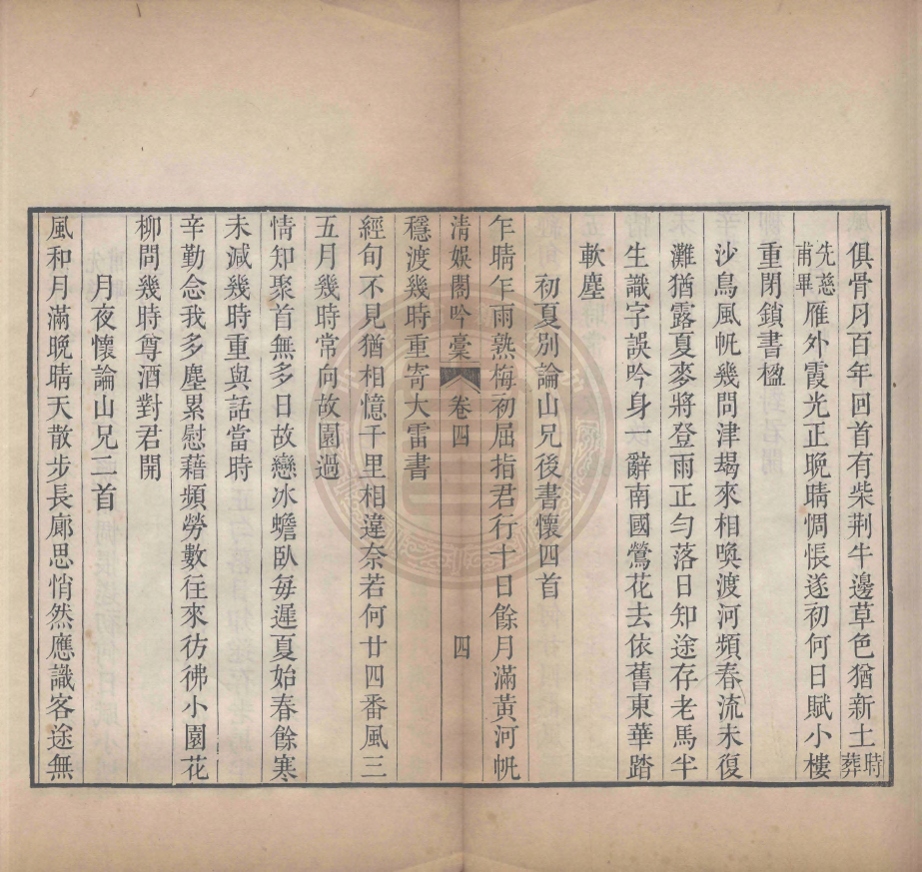 俱骨月百年回首有柴荆牛邊草色猶新土時葬
先慈甫畢雁外霞光正晚晴惆悵遂初何日賦小樓
重閉鎖書楹
沙鳥風帆幾問津朅來相喚渡河頻春流未復
灘猶露夏麥將登雨正勻落日知途存老馬半
生識字誤吟身一辭南國鶯花去依舊東華踏
軟塵
初夏別論山兄後書懷四首
乍晴乍雨熟梅初屈指君行十日餘月滿黃河帆
清娛閣吟藁 卷四 四
穩渡幾時重寄大雷書
經旬不見猶相憶千里相違奈若何廿四番風三
五月幾時常向故園過
情知聚首無多日故戀冰蟾臥每遲夏始春餘寒
未減幾時重與話當時
辛勤念我多塵累慰藉頻勞數往來彷彿小園花
柳問幾時尊酒對君開
月夜懷論山兄二首
風和月滿晚晴天散步長廊思悄然應識客途無